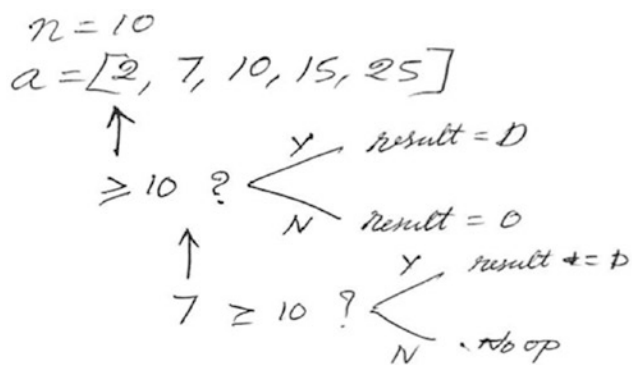 n = 10
a = [2, 7, 10, 15, 25]
≥ 10 ?
Y result = D
N result = 0
7 ≥ 10 ?
Y result += D
N . No op